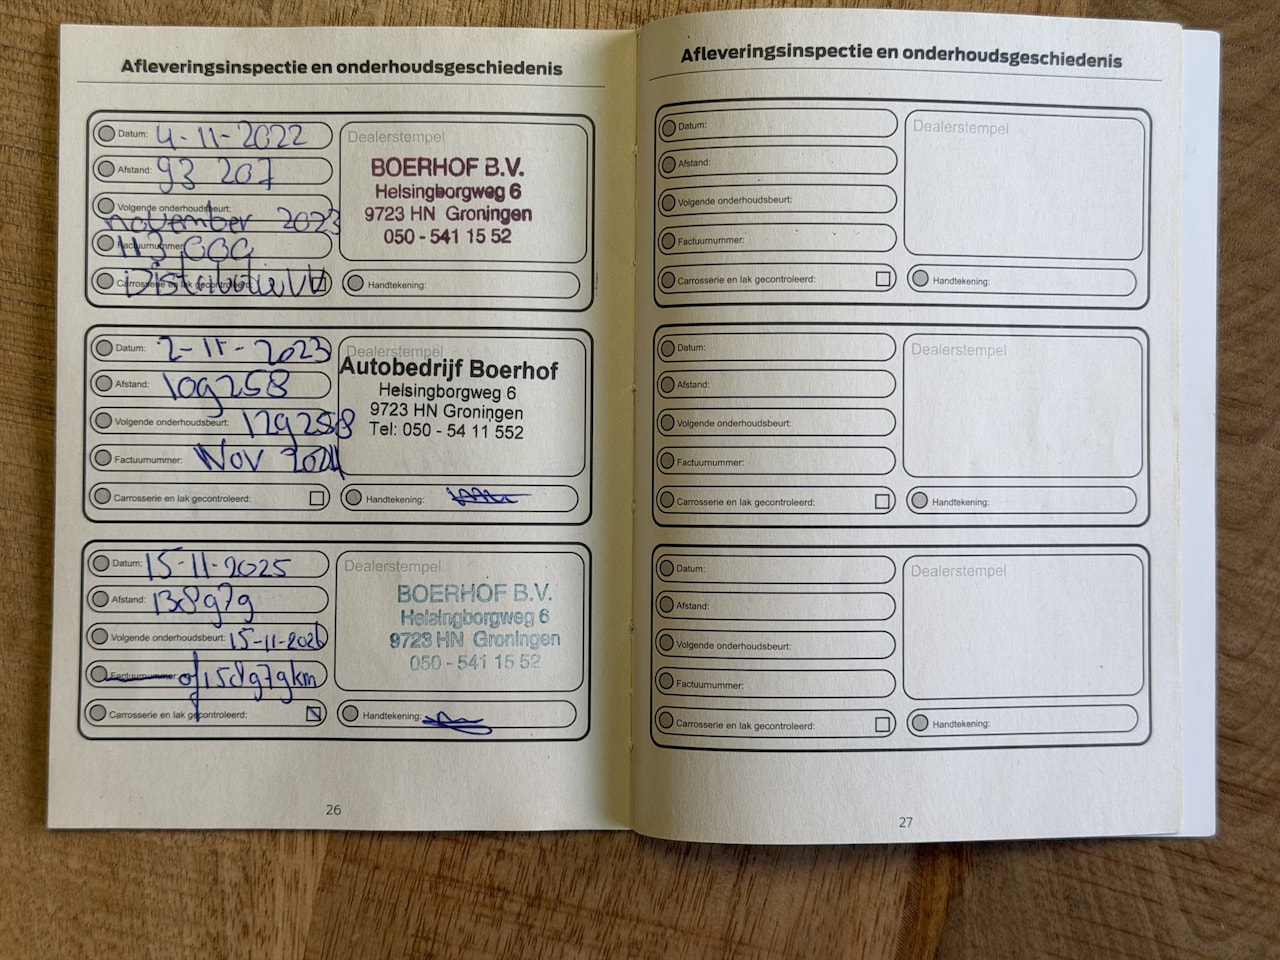 Afleveringsinspectie en onderhoudsgeschiedenis
Datum: 4-11-2022
Afstand: 93 207
Volgende onderhoudsbeurt:
november 2023
Factuurnummer:
113,000
Carrosserie en lak gecontroleerd:
Distributie VV
Dealerstempel
BOERHOF B.V.
Helsingborgweg 6
9723 HN Groningen
050 - 541 15 52
Handtekening:
Datum: 2-11-2023
Afstand: 109258
Volgende onderhoudsbeurt: 129258
Factuurnummer: Nov 2024
Carrosserie en lak gecontroleerd:
Dealerstempel
Autobedrijf Boerhof
Helsingborgweg 6
9723 HN Groningen
Tel: 050 - 54 11 552
Handtekening:
Datum: 15-11-2025
Afstand: 138979
Volgende onderhoudsbeurt: 15-11-2026
Factuurnummer: of 158979km
Carrosserie en lak gecontroleerd:
Dealerstempel
BOERHOF B.V.
Helsingborgweg 6
9723 HN Groningen
050 - 541 15 52
Handtekening:
26
Afleveringsinspectie en onderhoudsgeschiedenis
Datum:
Afstand:
Volgende onderhoudsbeurt:
Factuurnummer:
Carrosserie en lak gecontroleerd:
Dealerstempel
Handtekening:
Datum:
Afstand:
Volgende onderhoudsbeurt:
Factuurnummer:
Carrosserie en lak gecontroleerd:
Dealerstempel
Handtekening:
Datum:
Afstand:
Volgende onderhoudsbeurt:
Factuurnummer:
Carrosserie en lak gecontroleerd:
Dealerstempel
Handtekening:
27